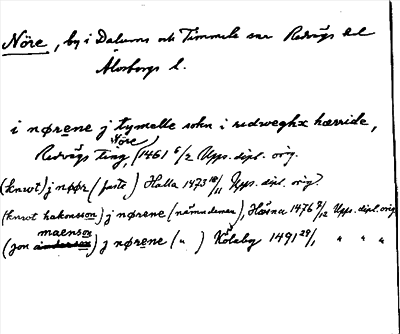 Nöre, by i Dalums och Timmele snr Redvägs hd
Älvsborgs l.
i nørene j tymelle sokn i redweghx hærride,
Redvägs ting, (Nöre) 1461 6/2 Upps. dipl. orig.
(knwt) j nøør (faste) Halla 1473 10/11 Upps. dipl. orig.
(knwt hakonsson) j nørene (nämndeman), Härna 1476 9/12 Upps. dipl. orig
(jon anderson maenson) j nørene ( " ) Kölaby 1491 29/1 " " "